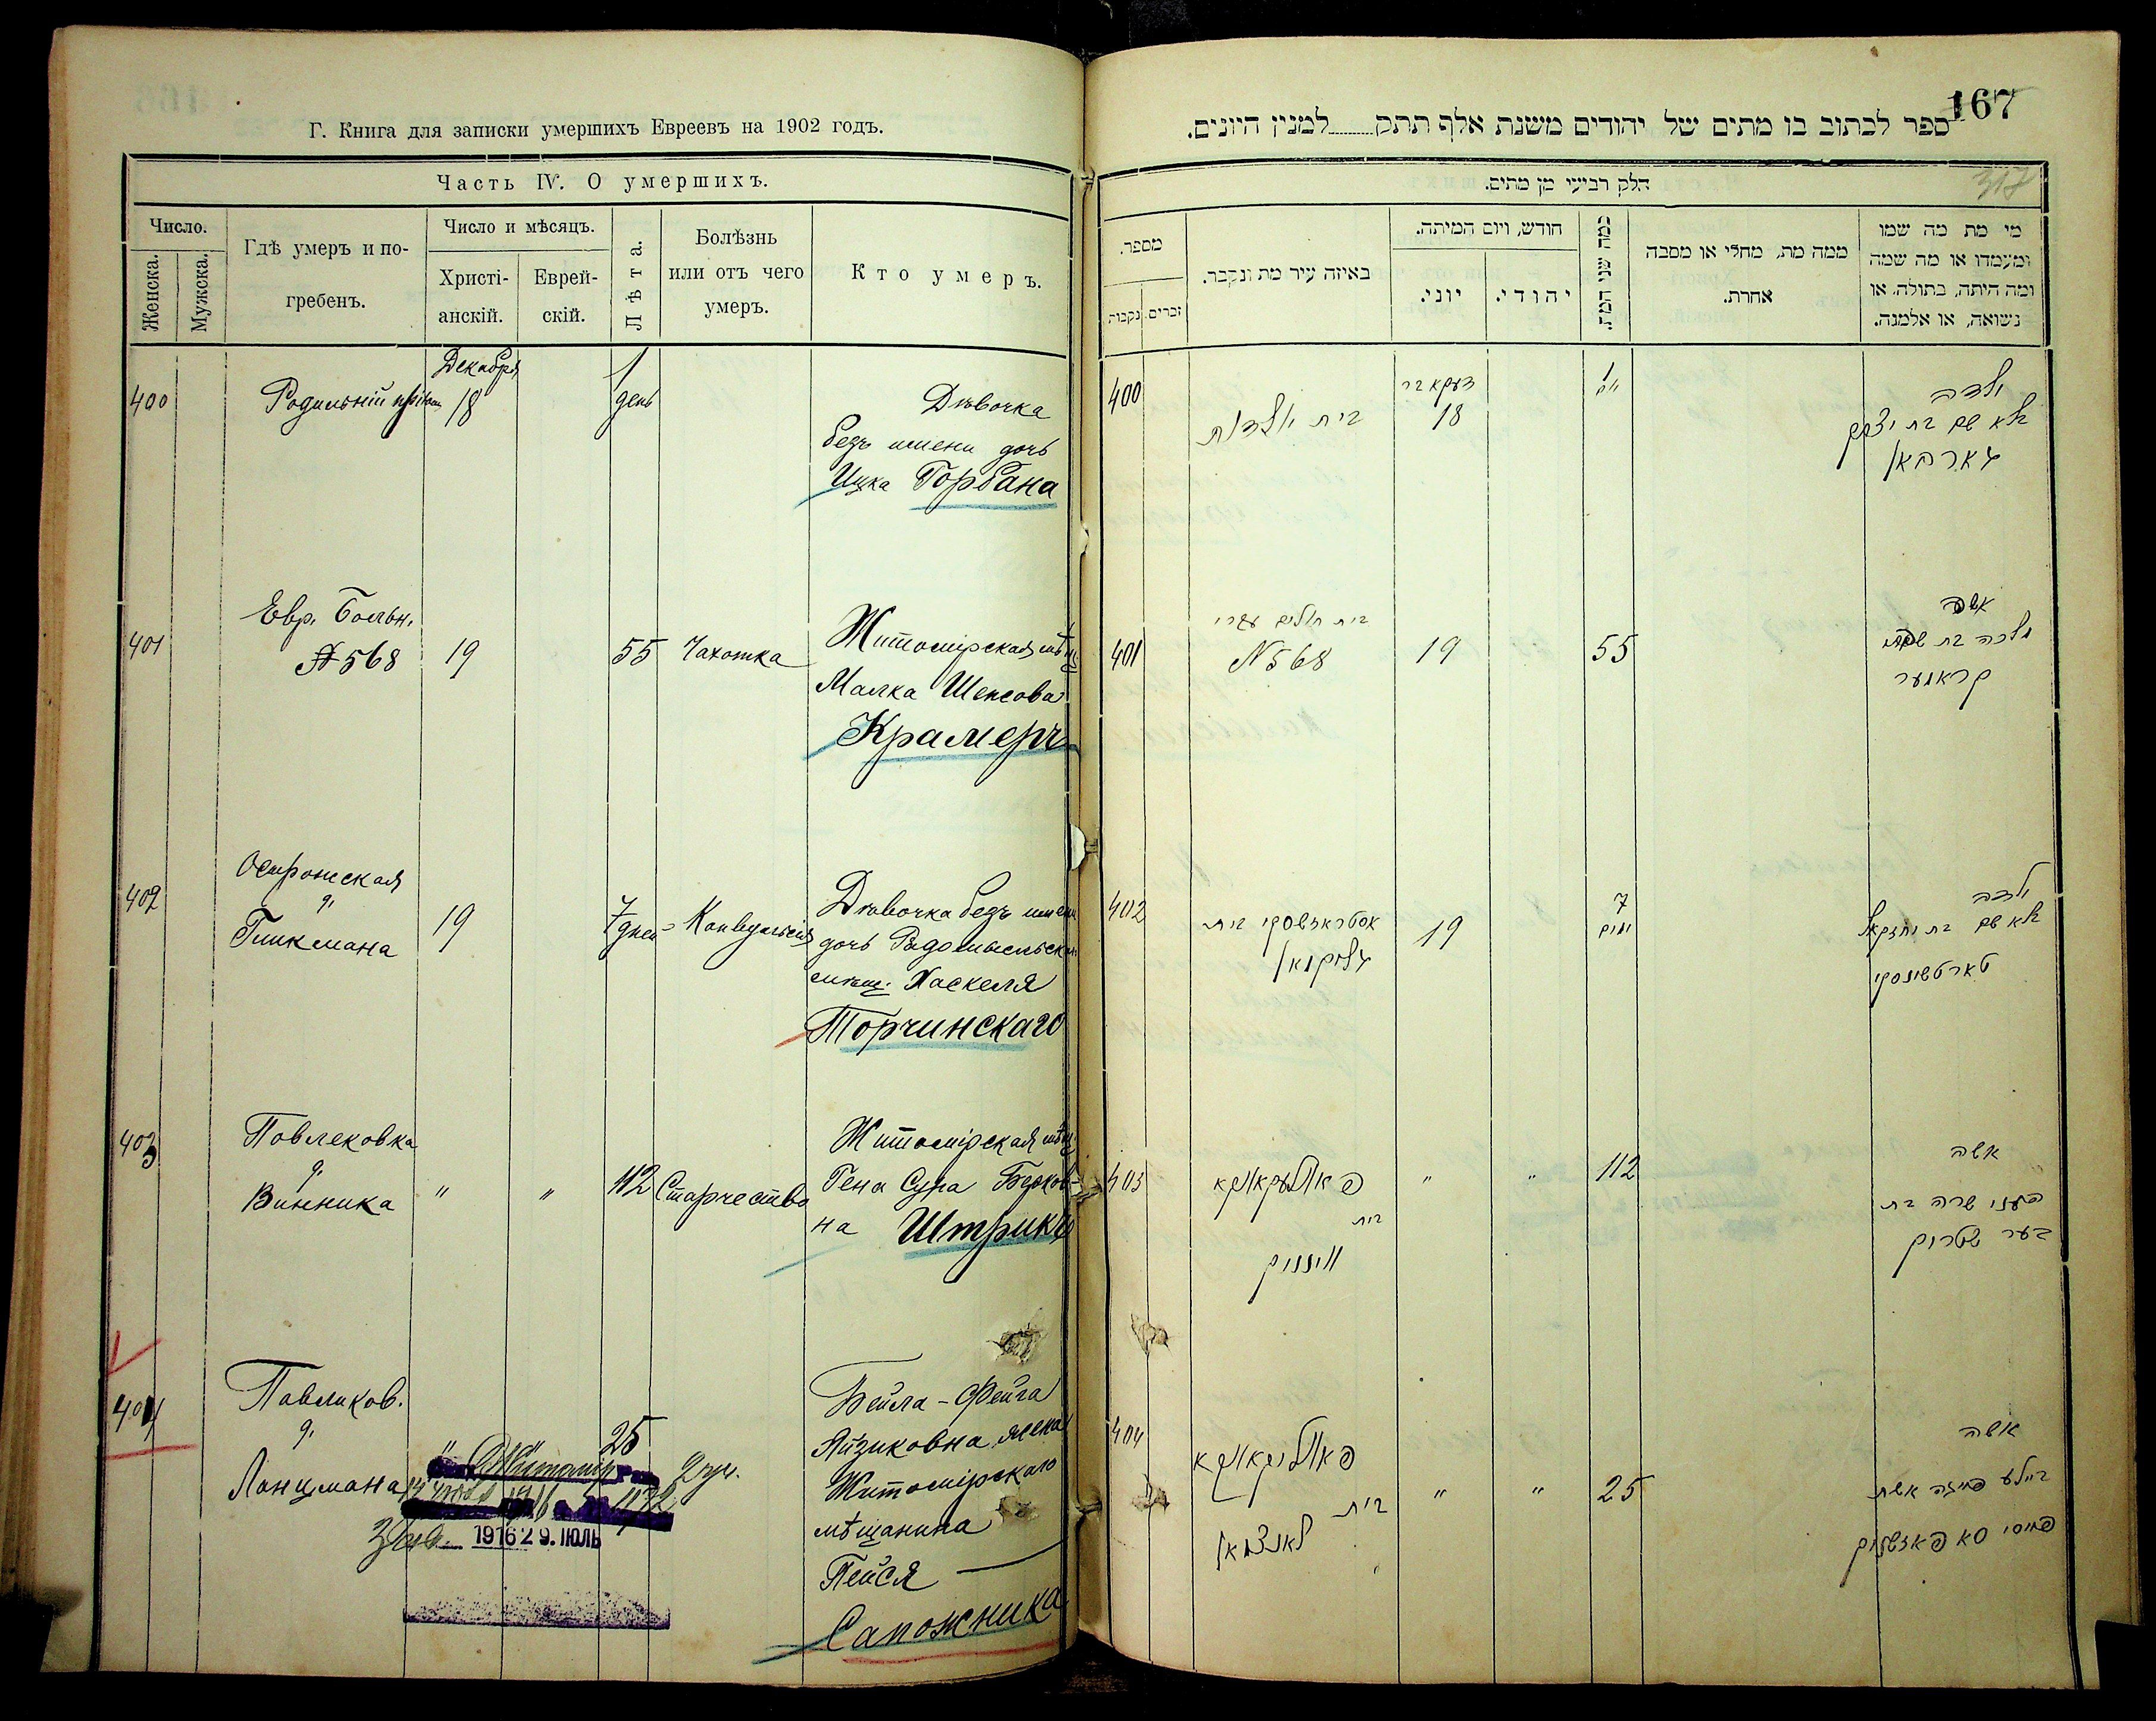 Г. Книга для записки умершихъ Евреевъ на 1902 годъ.
Часть IV. О умершихъ.
Число.
Женска.
Мужска.
Гдѣ умеръ и по-
гребенъ.
Число и мѣсяцъ.
Христі-
анскій.
Еврей-
скій.
Лѣта.
Болѣзнь
или отъ чего
умеръ.
Кто умеръ.
Декабря
400
Родильній
18
1
день
Дѣвочка
безъ имени дочь
Ицка Горбана
Евр. Больн.
401
№ 568
19
55
Чахотка
Житомірская мѣщ
Малка Шепсова
Крамеръ
Острожская
402
д.
Гликмана
19
7
дней
Конвульсія
Дѣвочка безъ имени
дочь Радомысльскаго
мѣщ. Хаскеля
Торчинскаго
Павлековка
403
д.
Винника
"
"
112
Старчество
Житомірская мѣщ.
Сура Берков-
на Штрикъ
Павликов.
404
д.
Ланцмана
25
Житомір
1916
1172
1916 29. ІЮЛЬ
Бейла-Фейга
Айзиковна жена
Житомірскаго
мѣщанина
Пейся
Сапожника
167
ספר לכתוב בו מתים של יהודים משנת אלף תתק למנין היונים.
317
חלק רביעי מן מתים.
מספר.
נקבות
זכרים.
באיזה עיר מת ונקבר.
חודש, ויום המיתה.
יוני.
יהודי.
כמה שני המת.
ממה מת, מחלי או מסבה
אחרת.
מי מת מה שמו
ומעמדו או מה שמה
ומה היתה, בתולה, או
נשואה, או אלמנה.
400
בית יולדות
דעקאבר
18
1
יום
ילדה
בלא שם בת יצחק
גארבאן
401
בית חולים עברי
N 568
19
55
אשה
מלכה בת שבתי
קראמער
402
אסטראזשסקי בית
גליקמאן
19
7
ימים
ילדה
בלא שם בת יחזקאל
טארטשינסקי
403
פאוולעקאווקא
בית
וויננוק
"
"
112
אשה
שרה בת
בער שטריק
404
פאווליקאווקא
בית
לאנצמאן
"
"
25
אשה
ביילע פייגה אשת
פייסי סאפאזשניק